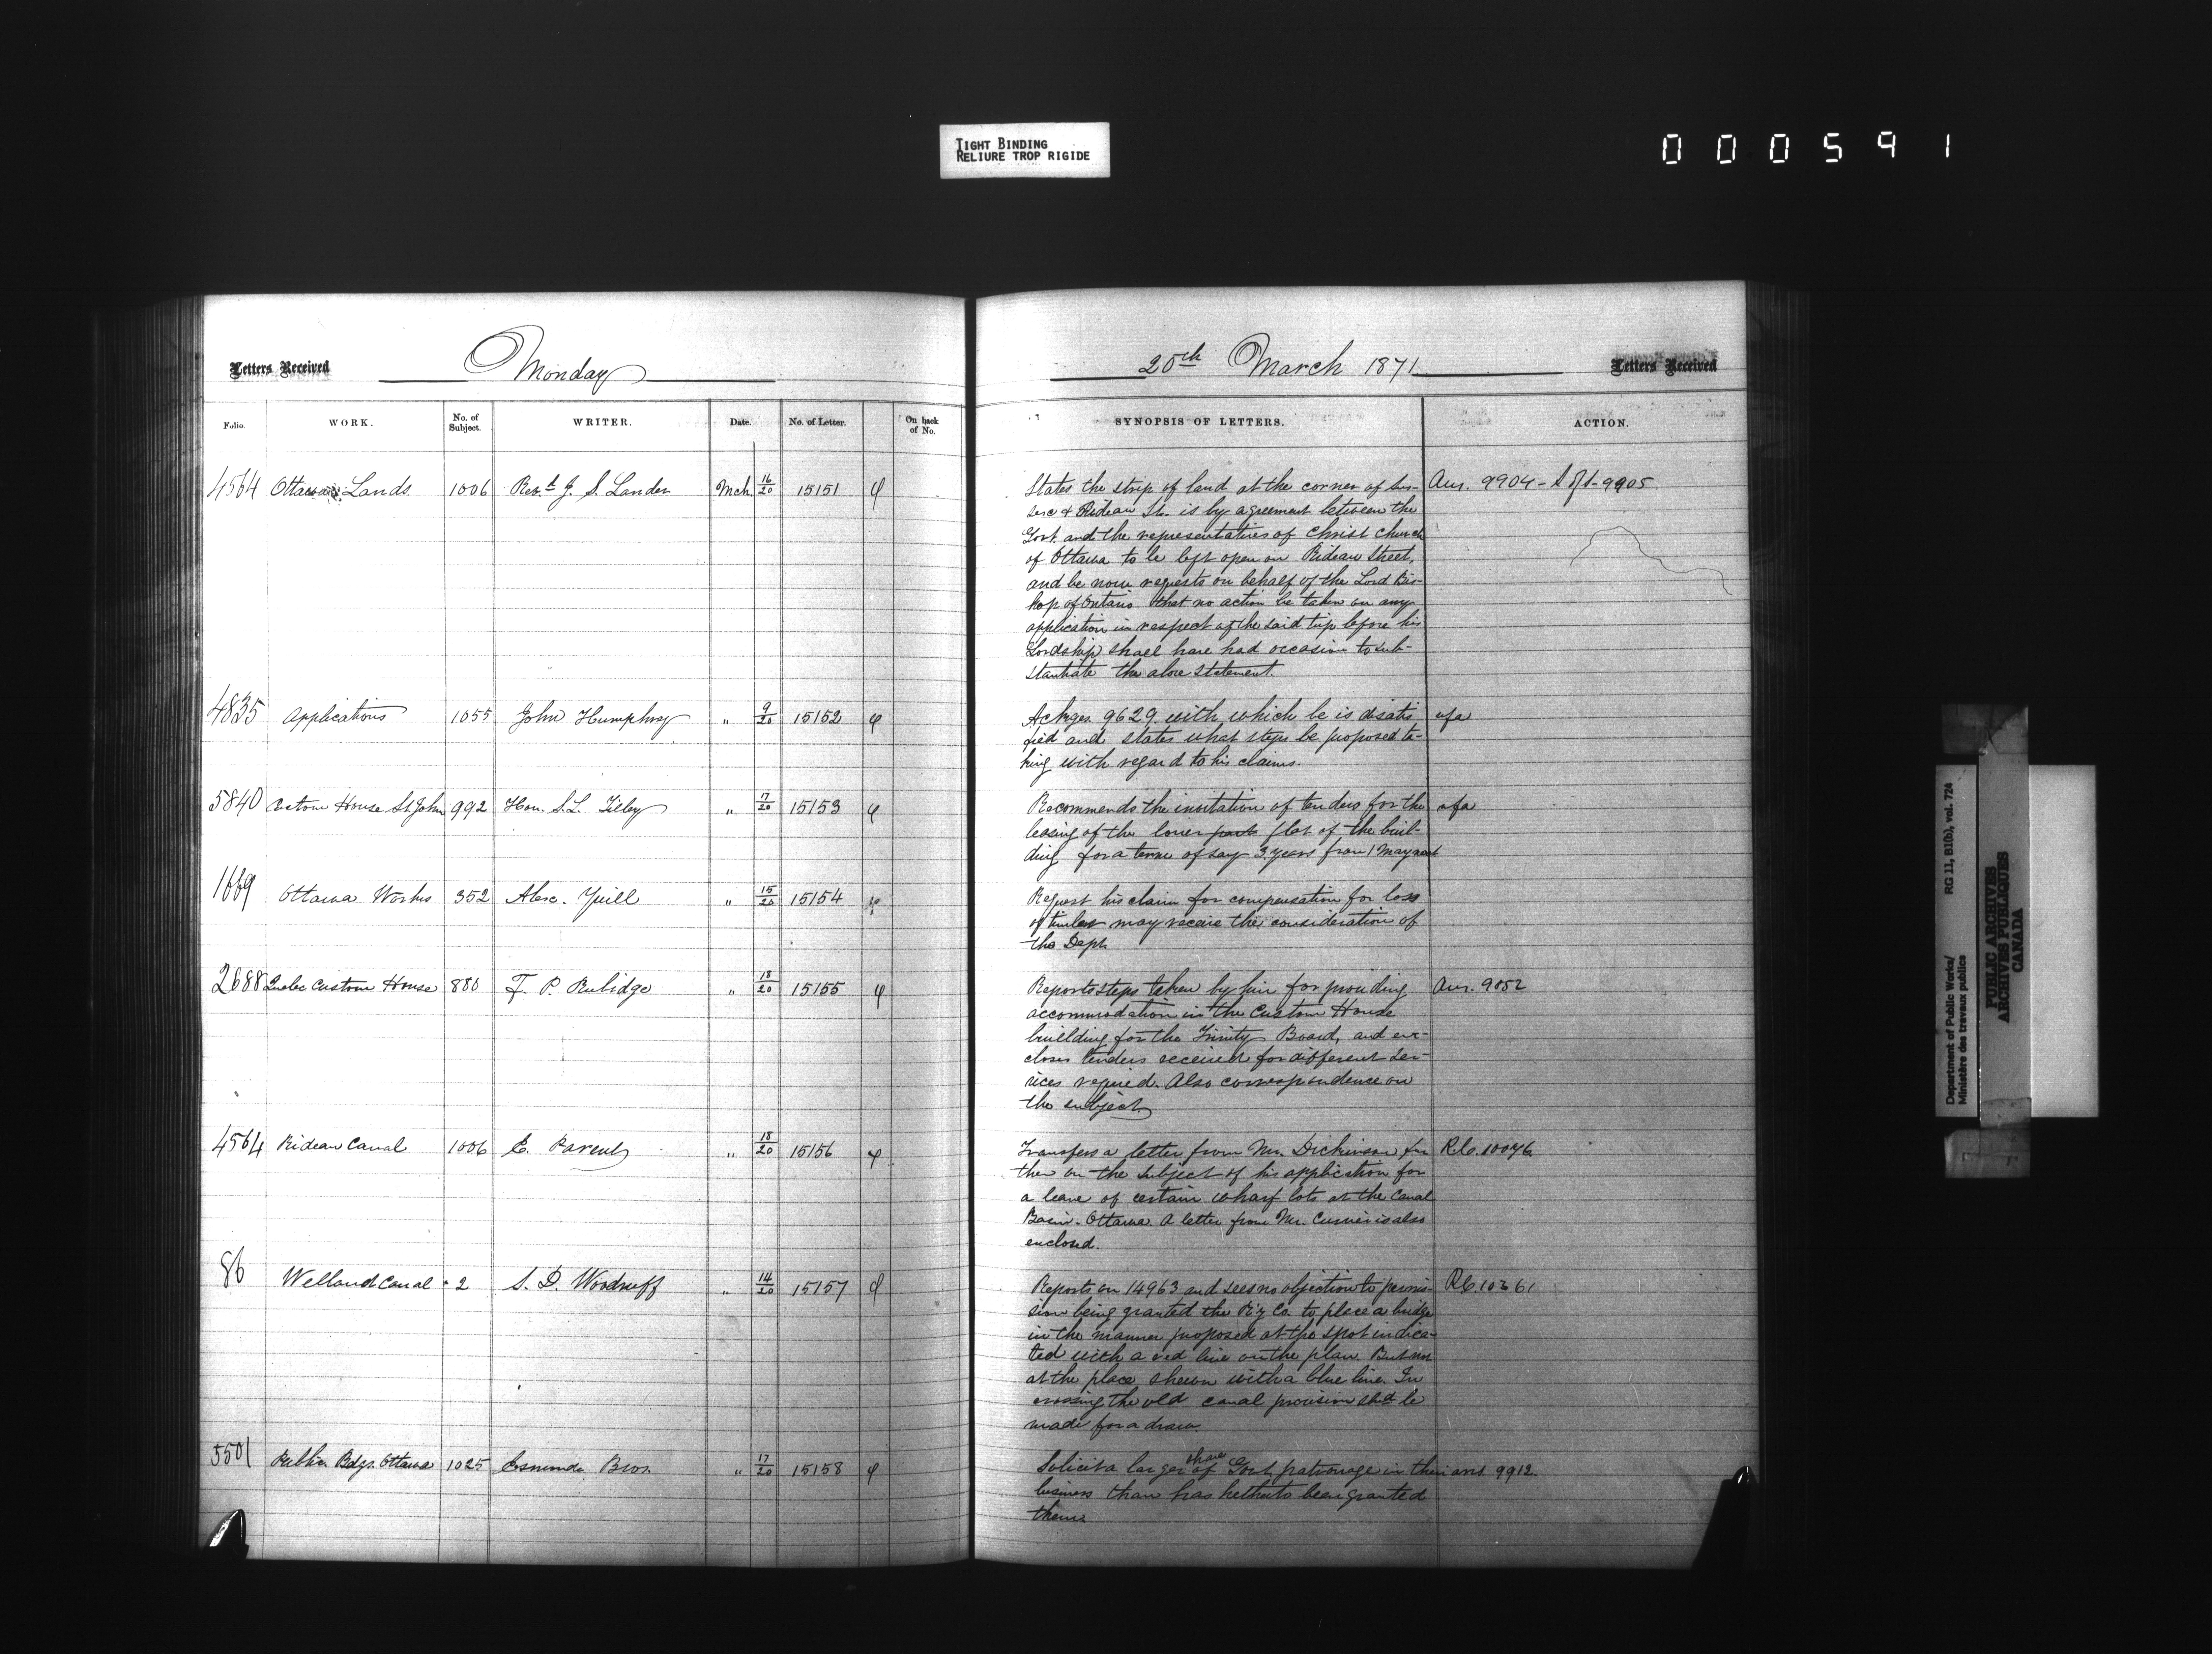 TIGHT BINDING
RELIURE TROP RIGIDE
000591
Letters Received
Monday
20th March 1871
Letters Received
Folio.
WORK.
No. of Subject.
WRITER.
Date.
No. of Letter.
On back of No.
SYNOPSIS OF LETTERS.
ACTION.
4564 Ottawa Lands 1006 Rev.d J. S. Lauder Mch 16/20 15151
States the strip of land at the corner of Sus-
sex & Rideau Sts. is by agreement between the
Govt. and the representatives of Christ Church
of Ottawa to be left open on Rideau Street,
and he now requests on behalf of the Lord Bis-
hop of Ontario that no action be taken on any
application in respect of the said strip before his
Lordship shall have had occasion to sub-
stantiate the above statement.
Ans. 9904 - 9905
4835 Applications 1055 John Humphrey " 9/20 15152
Ackges. 9629 with which he is disatis
fied and states what steps he proposed ta-
king with regard to his claims.
5840 Custom House St. John 992 Hon. S. L. Tilley " 17/20 15153
Recommends the invitation of tenders for the
leasing of the lower part flat of the buil-
ding for a term of say 3 years from 1 May next
1669 Ottawa Works 352 Alex. Yuill " 15/20 15154
Request his claim for compensation for loss
of timber may receive the consideration of
the Dept.
2688 Quebec Custom House 880 F. P. Rubidge " 18/20 15155
Reports steps taken by him for providing
accommodation in the Custom House
building for the Trinity Board, and en-
closes tenders received for different ser-
vices required. Also correspondence on
the subject
Ans. 9852
4564 Rideau Canal 1006 E. Parent " 18/20 15156
Transfers a letter from Mr. Dickinson fur
ther on the subject of his application for
a lease of certain wharf lots at the Canal
Basin - Ottawa. A letter from Mr. Currier is also
enclosed.
86 Welland Canal 2 S. D. Woodruff " 14/20 15157
Reports on 14963 and sees no objection to permis-
sion being granted the R'y Co. to place a bridge
in the manner proposed at the spot indica-
ted with a red line on the plan. But not
at the place shewn with a blue line. In
crossing the old canal provision shd. be
made for a draw.
5501 Public Bdgs. Ottawa 1025 Esmonde Bros. " 17/20 15158
Solicit a larger share of Govt. patronage in their
business than has hitherto been granted
them.
ans. 9912
Department of Public Works/
Ministère des travaux publics
RG 11, B1(b), vol. 724
PUBLIC ARCHIVES
ARCHIVES PUBLIQUES
CANADA